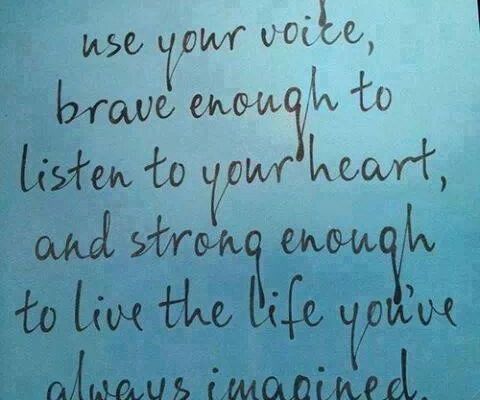 use your voice,
brave enough to
listen to your heart,
and strong enough
to live the life you've
always imagined.